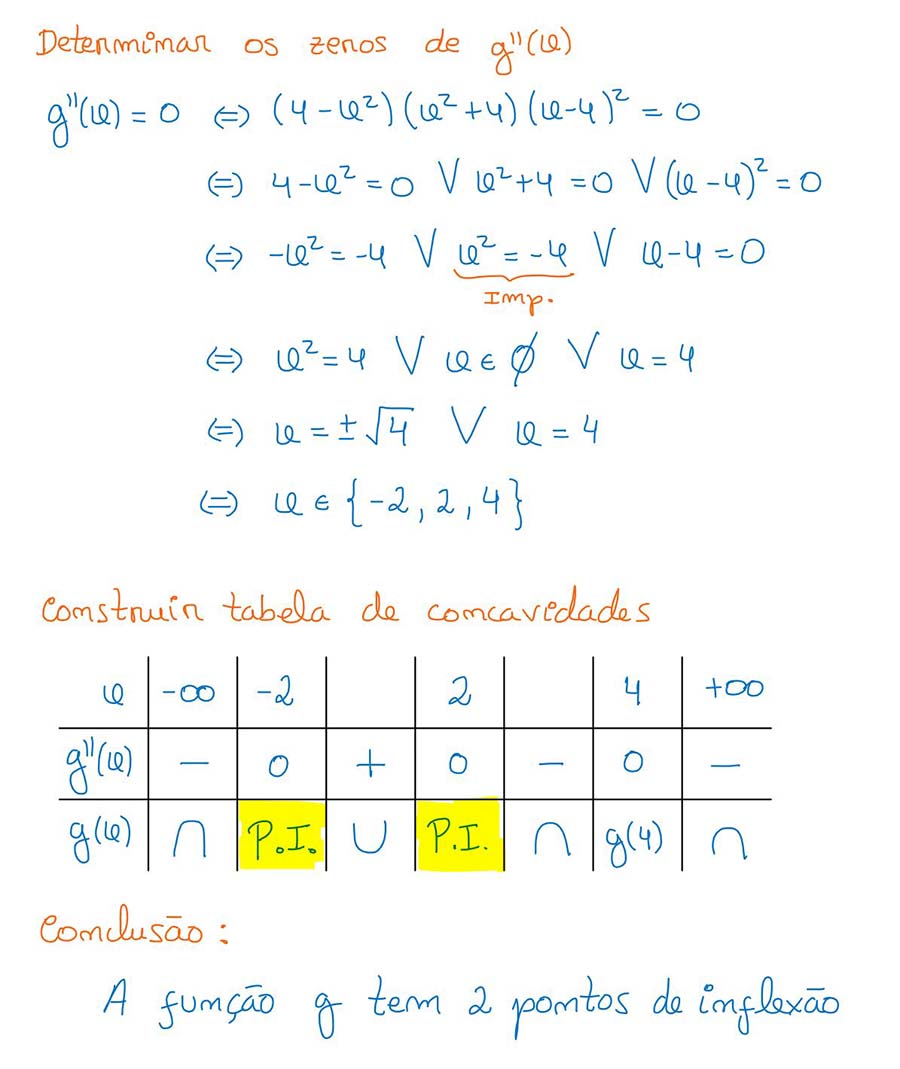 Determinar os zeros de g''(x)
g''(x) = 0 ⇔ (4-x²)(x²+4)(x-4)² = 0
⇔ 4-x² = 0 ∨ x²+4 = 0 ∨ (x-4)² = 0
⇔ -x² = -4 ∨ x² = -4 ∨ x-4 = 0
Imp.
⇔ x² = 4 ∨ x ∈ ∅ ∨ x = 4
⇔ x = ±√4 ∨ x = 4
⇔ x ∈ {-2, 2, 4}
Construir tabela de concavidades
x -∞ -2 2 4 +∞
g''(x) - 0 + 0 - 0 -
g(x) ∩ P.I. ∪ P.I. ∩ g(4) ∩
Conclusão:
A função g tem 2 pontos de inflexão